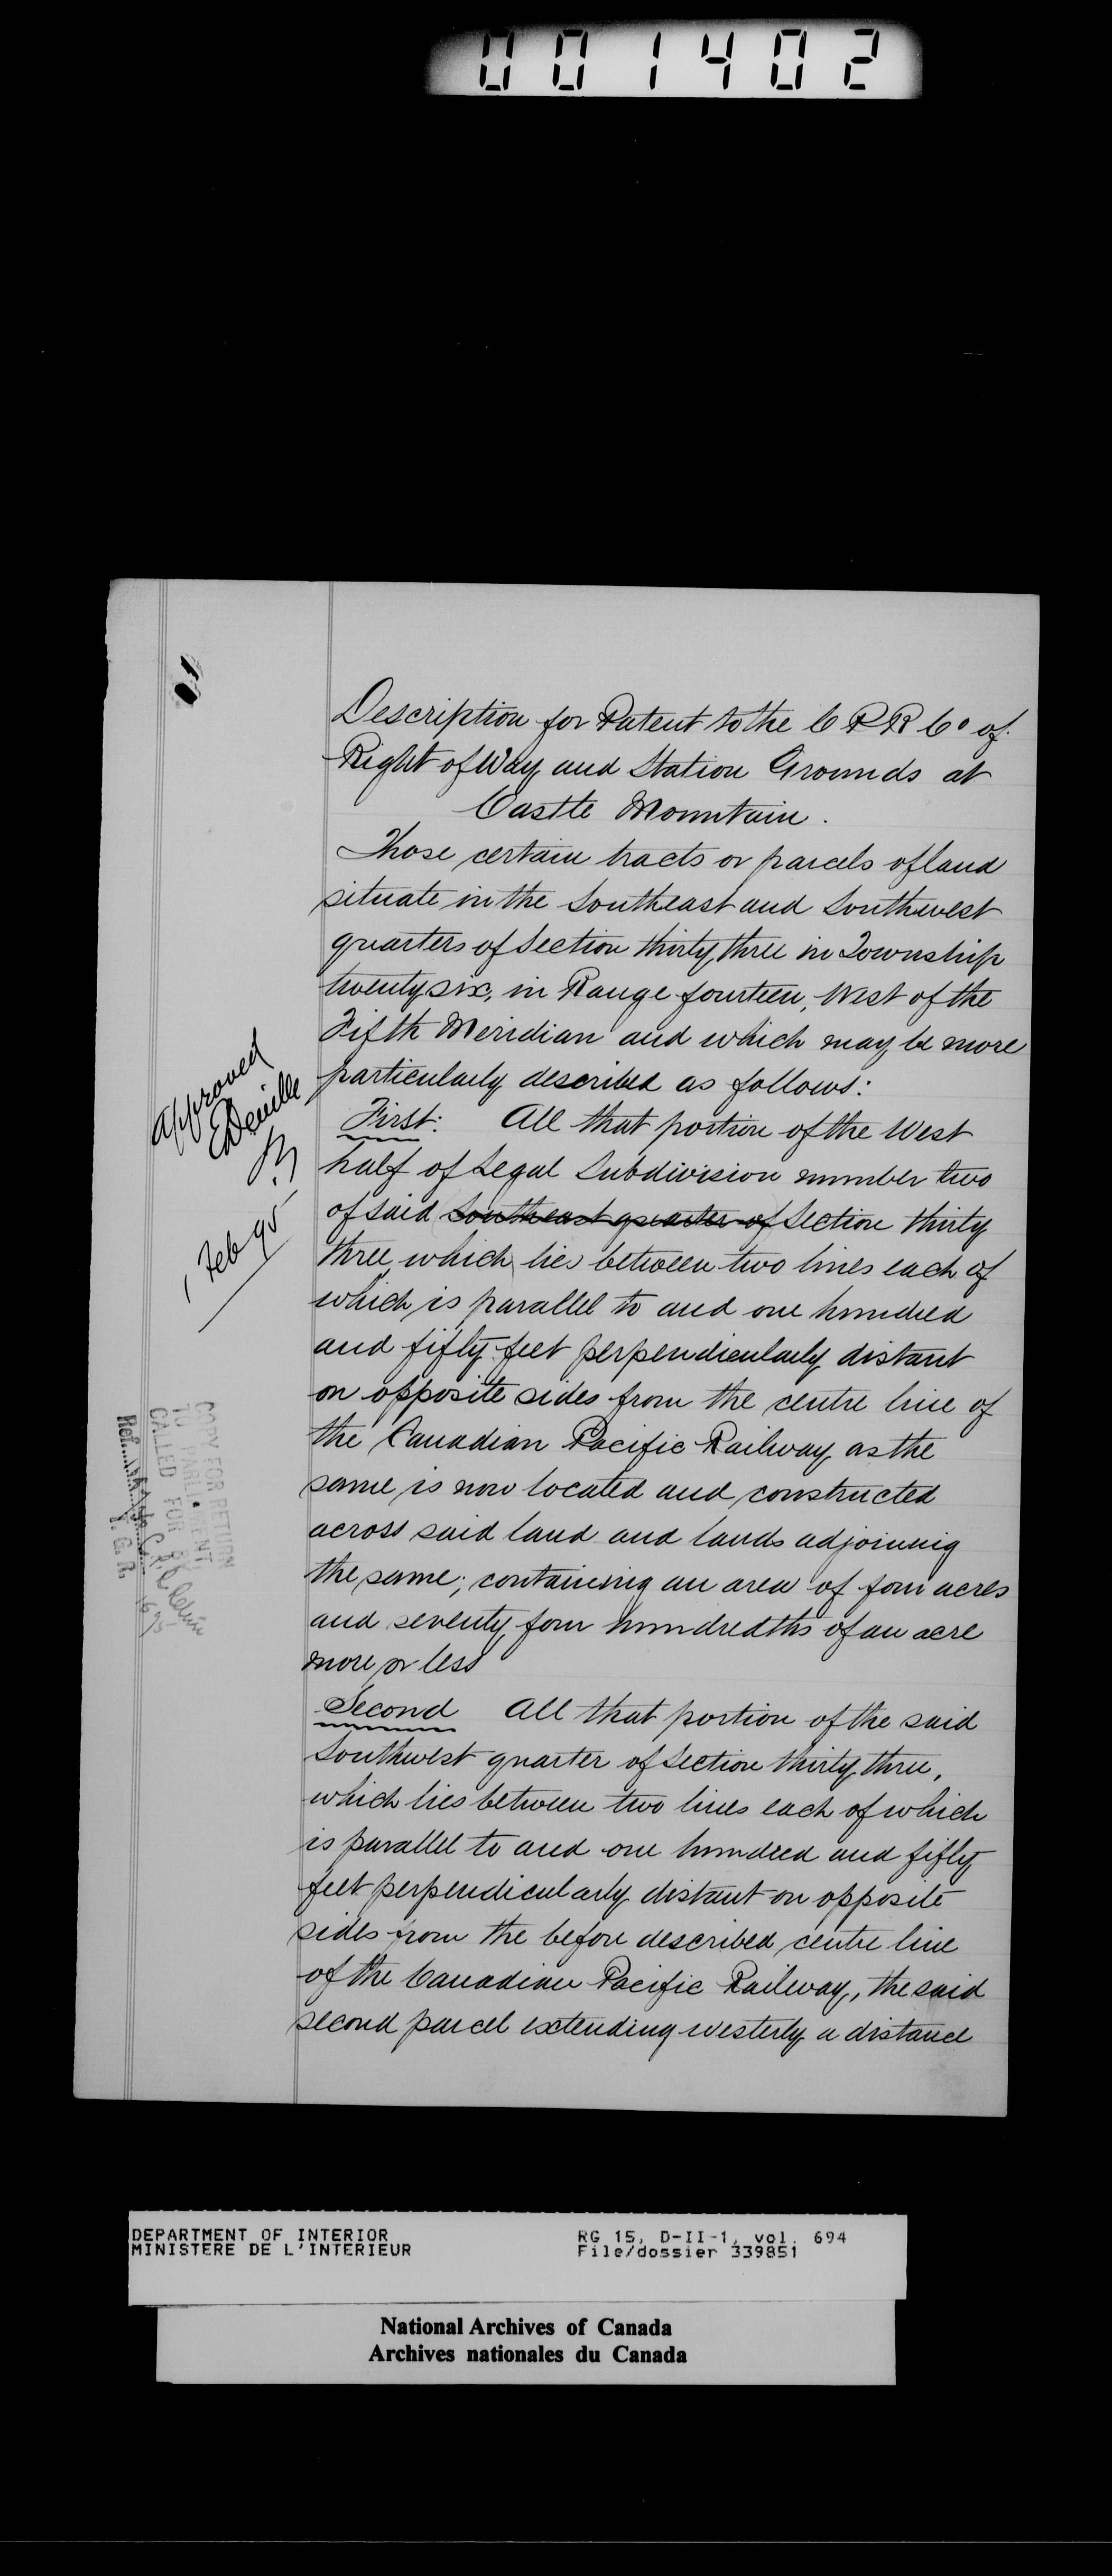 001402
Description for Patent to the C P R Co of
Right of Way and Station Grounds at
Castle Mountain.
Those certain tracts or parcels of land
situate in the Southeast and Southwest
quarters of Section thirty three in Township
twenty six, in Range fourteen, West of the
Fifth Meridian and which may be more
particularly described as follows:
First: All that portion of the West
half of Legal Subdivision number two
of said Southeast quarter of Section thirty
three which lies between two lines each of
which is parallel to and one hundred
and fifty feet perpendicularly distant
on opposite sides from the centre line of
the Canadian Pacific Railway as the
same is now located and constructed
across said land and lands adjoining
the same; containing an area of four acres
and seventy four hundredths of an acre
more or less
Second All that portion of the said
Southwest quarter of Section thirty three,
which lies between two lines each of which
is parallel to and one hundred and fifty
feet perpendicularly distant on opposite
sides from the before described centre line
of the Canadian Pacific Railway, the said
second parcel extending westerly a distance
Approved
E Deville
1 Feb 95
COPY FOR RETURN
TO PARLIAMENT
CALLED FOR
Ref.
DEPARTMENT OF INTERIOR
MINISTERE DE L'INTERIEUR
RG 15, D-II-1, vol. 694
File/dossier 339851
National Archives of Canada
Archives nationales du Canada